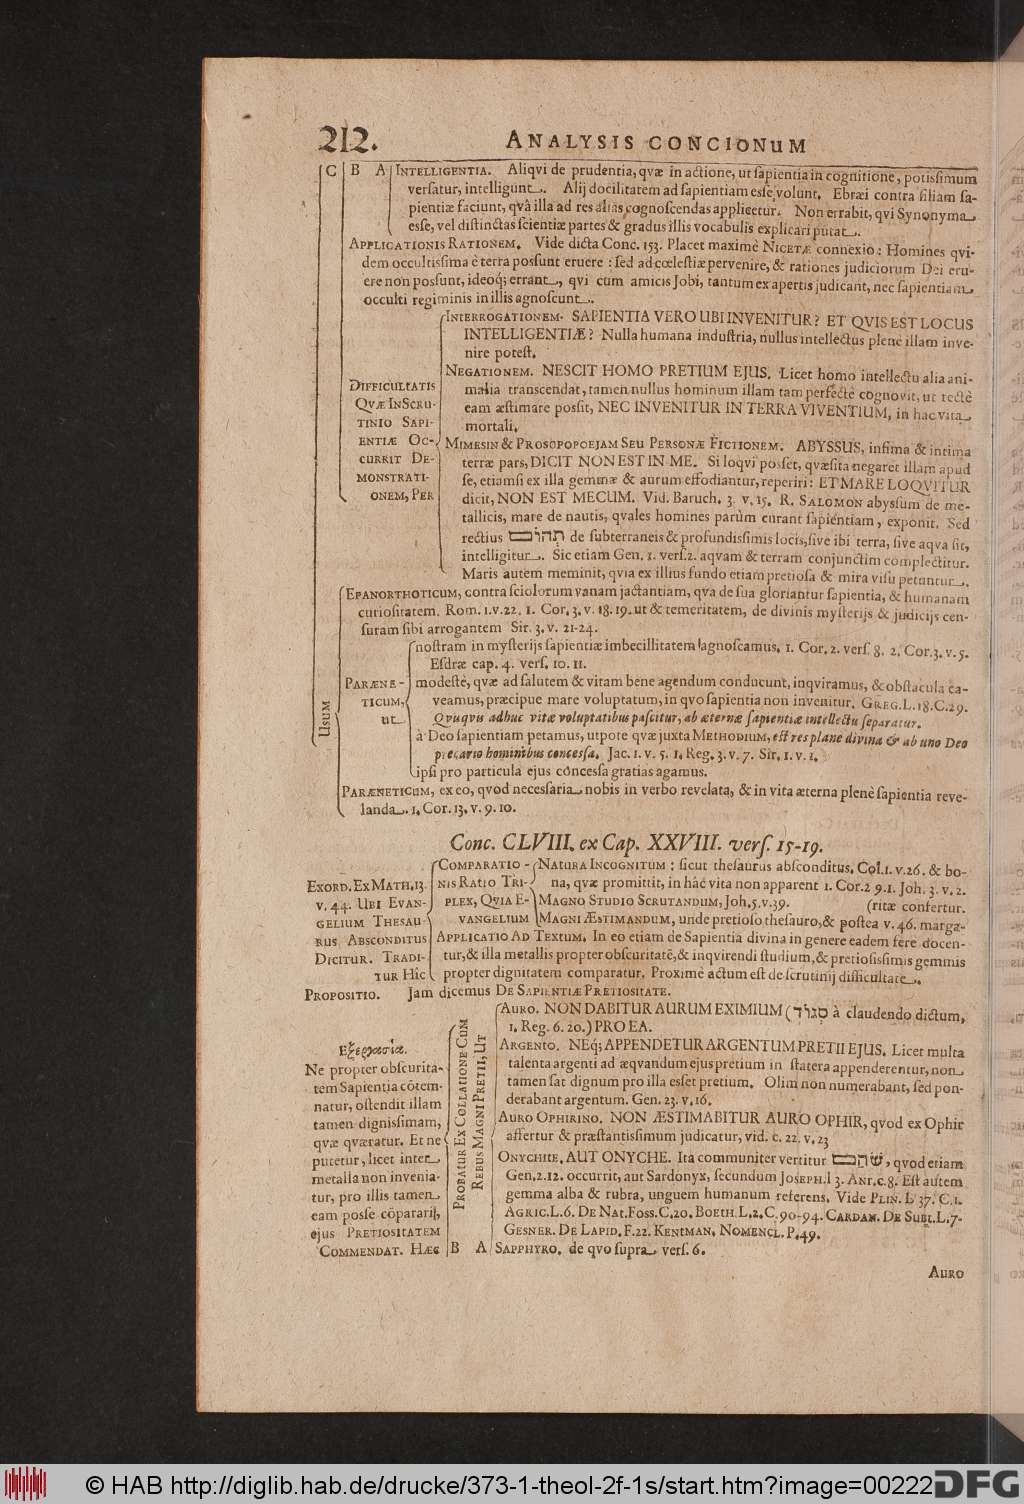 212. ANALYSIS CONCIONUM
C B A INTELLIGENTIA. Aliqvi de prudentia, qvæ in actione, ut sapientia in cognitione, potissimum
versatur, intelligunt. Alij docilitatem ad sapientiam esse volunt. Ebræi contra filiam sa-
pientiæ faciunt, qvà illa ad res alias cognoscendas applicetur. Non errabit, qvi Synonyma
esse, vel distinctas scientiæ partes & gradus illis vocabulis explicari putat.
APPLICATIONIS RATIONEM. Vide dicta Conc. 153. Placet maximè NICETÆ connexio: Homines qvi-
dem occultissima è terra possunt eruere: sed ad cœlestia pervenire, & rationes judiciorum Dei eru-
ere non possunt, ideoq; errant, qvi cum amicis Jobi, tantum ex apertis judicant, nec sapientiam
occulti regiminis in illis agnoscunt.
DIFFICULTATIS
QVÆ IN SCRU-
TINIO SAPI-
ENTIÆ OC-
CURRIT DE-
MONSTRATI-
ONEM, PER
INTERROGATIONEM. SAPIENTIA VERO UBI INVENITUR? ET QVIS EST LOCUS
INTELLIGENTIÆ? Nulla humana industria, nullus intellectus plenè illam inve-
nire potest.
NEGATIONEM. NESCIT HOMO PRETIUM EJUS. Licet homo intellectu alia ani-
malia transcendat, tamen nullus hominum illam tam perfectè cognovit, ut rectè
eam æstimare possit, NEC INVENITUR IN TERRA VIVENTIUM, in hac vita
mortali.
MIMESIN & PROSOPOPOEJAM SEU PERSONÆ FICTIONEM. ABYSSUS, infima & intima
terræ pars, DICIT NON EST IN ME. Si loqvi posset, qvæsita negaret illam apud
se, etiamsi ex illa gemmæ & aurum effodiantur, reperiri: ET MARE LOQVITUR
dicit, NON EST MECUM. Vid. Baruch. 3. v. 15. R. SALOMON abyssum de me-
tallicis, mare de nautis, qvales homines parùm curant sapientiam, exponit. Sed
rectius תְהוֹם de subterraneis & profundissimis locis, sive ibi terra, sive aqva sit,
intelligitur. Sic etiam Gen. 1. vers. 2. aqvam & terram conjunctim complectitur.
Maris autem meminit, qvia ex illius fundo etiam pretiosa & mira visu petuntur.
USUM
EPANORTHOTICUM, contra sciolorum vanam jactantiam, qva de sua gloriantur sapientia, & humanam
curiositatem. Rom. 1. v. 22. 1. Cor. 3. v. 18. 19. ut & temeritatem, de divinis mysterijs & judicijs cen-
suram sibi arrogantem Sir. 3. v. 21-24.
PARÆNE-
TICUM,
ut
nostram in mysterijs sapientiæ imbecillitatem agnoscamus. 1. Cor. 2. vers. 8. 2. Cor. 3. v. 5.
Esdræ cap. 4. vers. 10. 11.
modestè, qvæ ad salutem & vitam bene agendum conducunt, inqviramus, & obstacula ca-
veamus, præcipue mare voluptatum, in qvo sapientia non invenitur. GREG. L. 18. C. 29.
Qvisqvis adhuc vitæ voluptatibus pascitur, ab æternæ sapientiæ intellectu separatur.
à Deo sapientiam petamus, utpote qvæ juxta METHODIUM, est res plane divina & ab uno Deo
precario hominibus concessa. Jac. 1. v. 5. 1. Reg. 3. v. 7. Sir. 1. v. 1.
ipsi pro particula ejus concessa gratias agamus.
PARÆNETICUM, ex eo, qvod necessaria nobis in verbo revelata, & in vita æterna plenè sapientia reve-
landa. 1. Cor. 13. v. 9. 10.
Conc. CLVIII. ex Cap. XXVIII. vers. 15-19.
EXORD. EX MATH. 13.
v. 44. UBI EVAN-
GELIUM THESAU-
RUS ABSCONDITUS
DICITUR. TRADI-
TUR HÎC
COMPARATIO-
NIS RATIO TRI-
PLEX, QVIA E-
VANGELIUM
NATURA INCOGNITUM: sicut thesaurus absconditus. Col. 1. v. 26. & bo-
na, qvæ promittit, in hâc vita non apparent 1. Cor. 2 9. 1. Joh. 3. v. 2.
MAGNO STUDIO SCRUTANDUM, Joh. 5. v. 39. (ritæ confertur.
MAGNI ÆSTIMANDUM, unde pretioso thesauro, & postea v. 46. marga-
APPLICATIO AD TEXTUM. In eo etiam de Sapientia divina in genere eadem ferè docen-
tur, & illa metallis propter obscuritatē, & inqvirendi studium, & pretiosissimis gemmis
propter dignitatem comparatur. Proximè actum est de scrutinij difficultate.
PROPOSITIO. Jam dicemus DE SAPIENTIÆ PRETIOSITATE.
Εξεργασία.
Ne propter obscurita-
tem Sapientia cōtem-
natur, ostendit illam
tamen dignissimam,
qvæ qværatur. Et ne
putetur, licet inter
metalla non invenia-
tur, pro illis tamen
eam posse cōparari,
ejus PRETIOSITATEM
COMMENDAT. HÆC
PROBATUR EX COLLATIONE CUM
REBUS MAGNI PRETII, UT
AURO. NON DABITUR AURUM EXIMIUM (סְגוֹר à claudendo dictum,
1. Reg. 6. 20.) PRO EA.
ARGENTO. NEq; APPENDETUR ARGENTUM PRETII EJUS. Licet multa
talenta argenti ad æqvandum ejus pretium in statera appenderentur, non
tamen sat dignum pro illa esset pretium. Olim non numerabant, sed pon-
derabant argentum. Gen. 23. v. 16.
AURO OPHIRINO. NON ÆSTIMABITUR AURO OPHIR, qvod ex Ophir
affertur & præstantissimum judicatur, vid. c. 22. v. 23
ONYCHITE, AUT ONYCHE. Ita communiter vertitur שֹׁהַם, qvod etiam
Gen. 2. 12. occurrit, aut Sardonyx, secundum JOSEPH. l 3. ANT. c. 8. Est autem
gemma alba & rubra, unguem humanum referens. Vide PLIN. L. 37. C. 1.
AGRIC. L. 6. DE NAT. FOSS. C. 20. BOETH. L. 2. C. 90-94. CARDAN. DE SUBT. L. 7.
GESNER. DE LAPID. F. 22. KENTMAN. NOMENCL. P. 49.
B A SAPPHYRO. de qvo supra vers. 6.
AURO
© HAB http://diglib.hab.de/drucke/373-1-theol-2f-1s/start.htm?image=00222 DFG